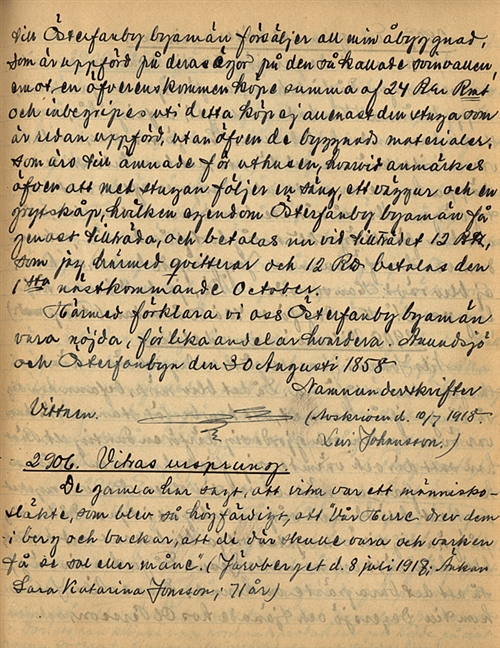 till Österfanby byamän försäljer all min åbyggnad,
som är uppförd på deras egor på den så kallade somvallen
emot en öfverenskommen köpe summa af 24 Rdr Rmt
och inbegripes uti detta köp ej allenast den stuga som
är redan uppförd, utan öfven de byggnads materialer,
som äro till ämnade för uthusen, hvarvid anmärkes
öfven att met stugan följer en säng, ett väggur och en
grytskåp, hvilken egendom Österfanby byamän få
genast tillträda, och betalas nu vid tillträdet 12 Rdr,
som jag härmed qvitterar och 12 Rd betalas den
1sta nästkommande October.
Härmed förklara vi oss Österfanby byamän
vara nöjda, för lika andelar hvardera. Anundsjö
och Österfanbyn den 30 Augusti 1858
Namnunderskrifter
Vittnen. (Avskriven d. 10/7 1918.
Levi Johansson.)
2906. Vitras ursprung.
De gamla har sagt, att vitra var ett människo-
släkte, som blev så högfärdigt, att "Vår Herre drev dem
i berg och backar, att de där skulle vara och varken
få se sol eller måne". (Järvberget d. 8 juli 1918; Änkan
Sara Katarina Jonsson, 71 år)